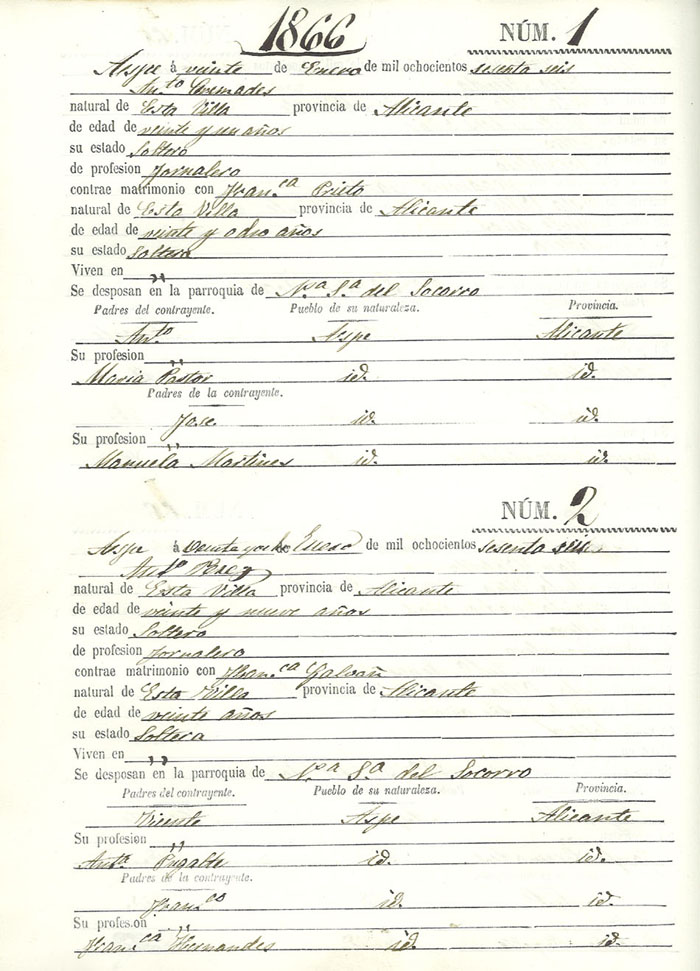 1866 NÚM. 1
Aspe á veinte de Enero de mil ochocientos sesenta seis
Ant.to Cremades
natural de Esta Villa provincia de Alicante
de edad de veinte y un años
su estado Soltero
de profesion Jornalero
contrae matrimonio con Fran.ca Prieto
natural de Esta Villa provincia de Alicante
de edad de veinte y ocho años
su estado Soltera
Viven en ,,
Se desposan en la parroquia de N.sa S.a del Socorro
Padres del contrayente. Pueblo de su naturaleza. Provincia.
Ant.o Aspe Alicante
Su profesion ,,
Maria Pastor id. id.
Padres de la contrayente.
Jose id. id.
Su profesion ,,
Manuela Martines id. id.
NÚM. 2
Aspe á Enero de mil ochocientos sesenta seis
Ant.o Baez
natural de Esta Villa provincia de Alicante
de edad de veinte y nueve años
su estado Soltero
de profesion Jornalero
contrae matrimonio con Fran.ca Galvañ
natural de Esta Villa provincia de Alicante
de edad de veinte años
su estado Soltera
Viven en ,,
Se desposan en la parroquia de N.a S.a del Socorro
Padres del contrayente. Pueblo de su naturaleza. Provincia.
Vicente Aspe Alicante
Su profesion ,,
Ant.a id. id.
Padres de la contrayente.
Fran.co id. id.
Su profesion ,,
Fran.ca Hernandes id. id.